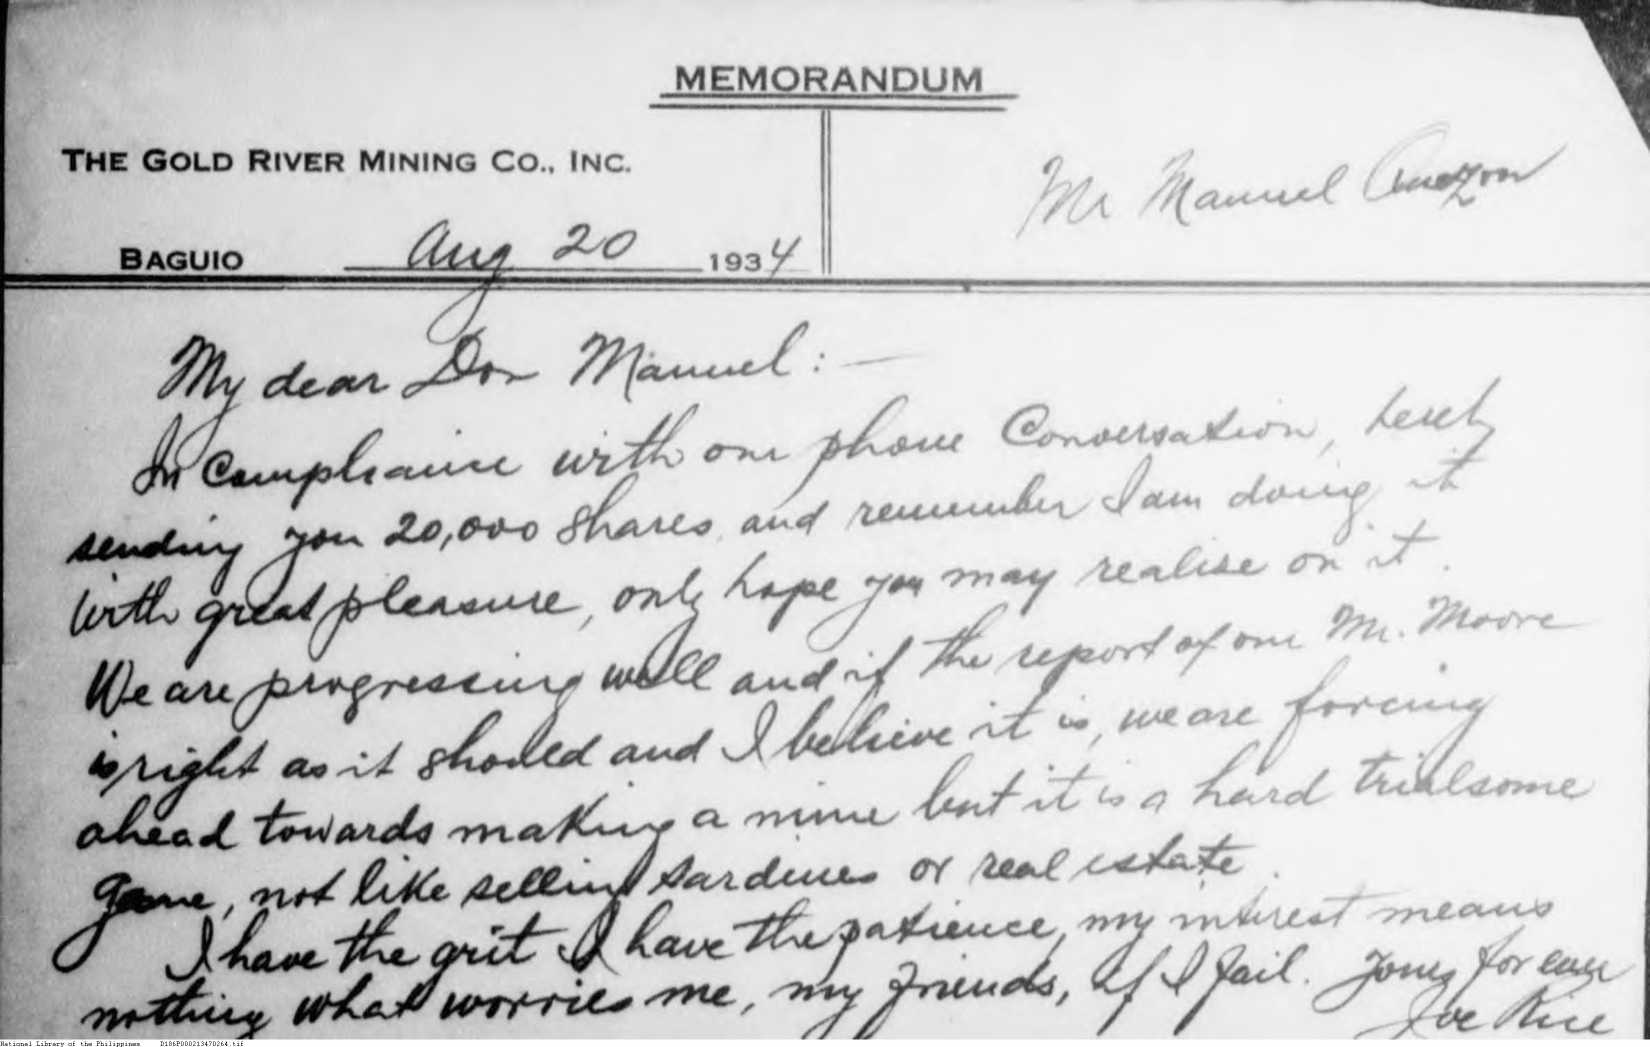 MEMORANDUM
THE GOLD RIVER MINING CO., INC.
Mr Manuel
BAGUIO Aug 20 1934
My dear Don Manuel: —
In Compliance with our phone Conversation, hereby
sending you 20,000 shares, and remember I am doing it
with great pleasure, only hope you may realise on it.
We are progressing well and if the report of our Mr. Moore
is right as it should and I believe it is, we are forcing
ahead towards making a mine but it is a hard trialsome
game, not like selling sardines or real estate.
I have the grit I have the patience, my interest means
nothing what worries me, my friends, if I fail. Yours for ever
Joe Rice
National Library of the Philippines D186P000213470264.tif